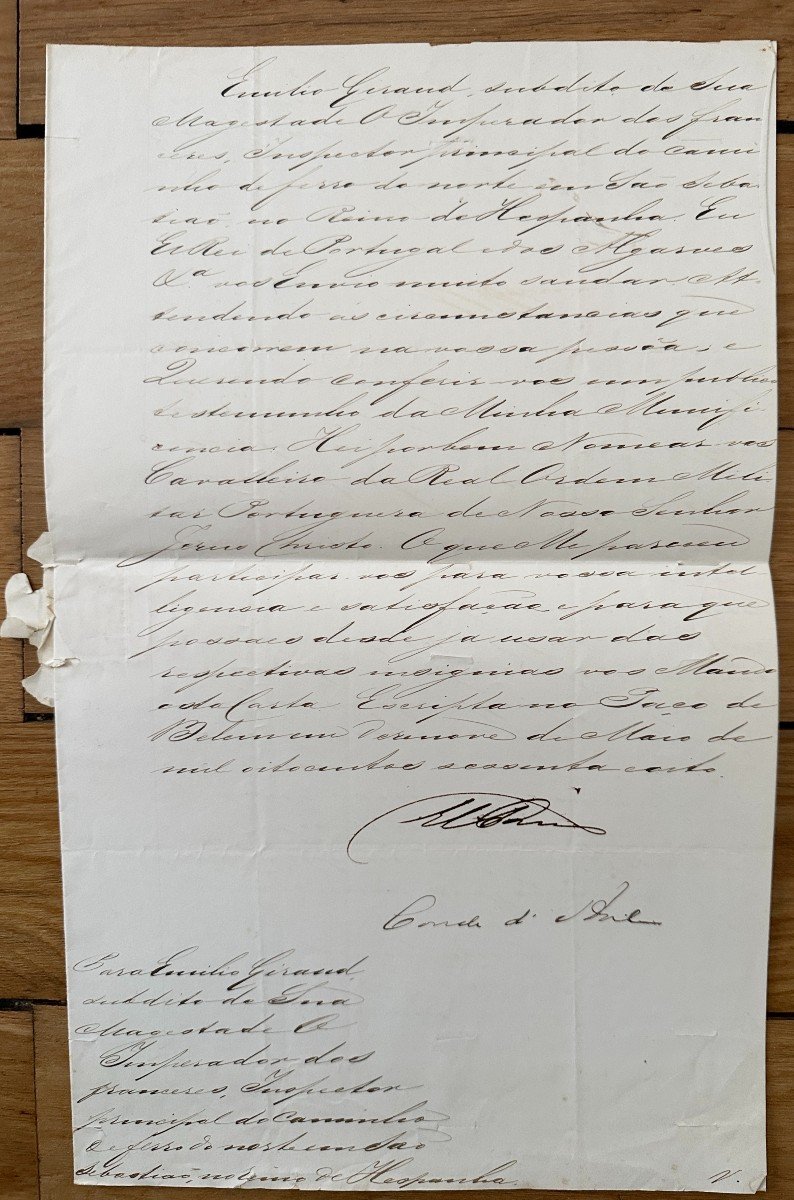 Emilio Giraud, subdito de Sua
Magestade O Imperador dos fran
cezes, Inspector principal do cami
nho de ferro do norte em São Sebas
tião, no Reino de Hespanha. Eu
El Rei de Portugal e dos Algarves
&.ª vos Envio muito saudar. At
tendendo ás circumstancias que
concorrem na vossa pessôa, e
Querendo conferir vos um publico
testemunho da Minha Munifi
cencia: Hei por bem Nomear vos
Cavalleiro da Real Ordem Mili
tar Portugueza de Nosso Senhor
Jesus Christo. O que Me pareceu
participar vos para vossa intel
ligencia e satisfação, e para que
possaes desde já usar das
respectivas insignias vos Mando
esta Carta. Escripta no Paço de
Belem em dezenove de Maio de
mil oitocentos sessenta e oito.
El Rei
Conde d'Avila
Para Emilio Giraud,
subdito de Sua
Magestade O
Imperador dos
francezes, Inspector
principal do Caminho
de ferro do norte em São
Sebastião, no reino de Hespanha.
V.